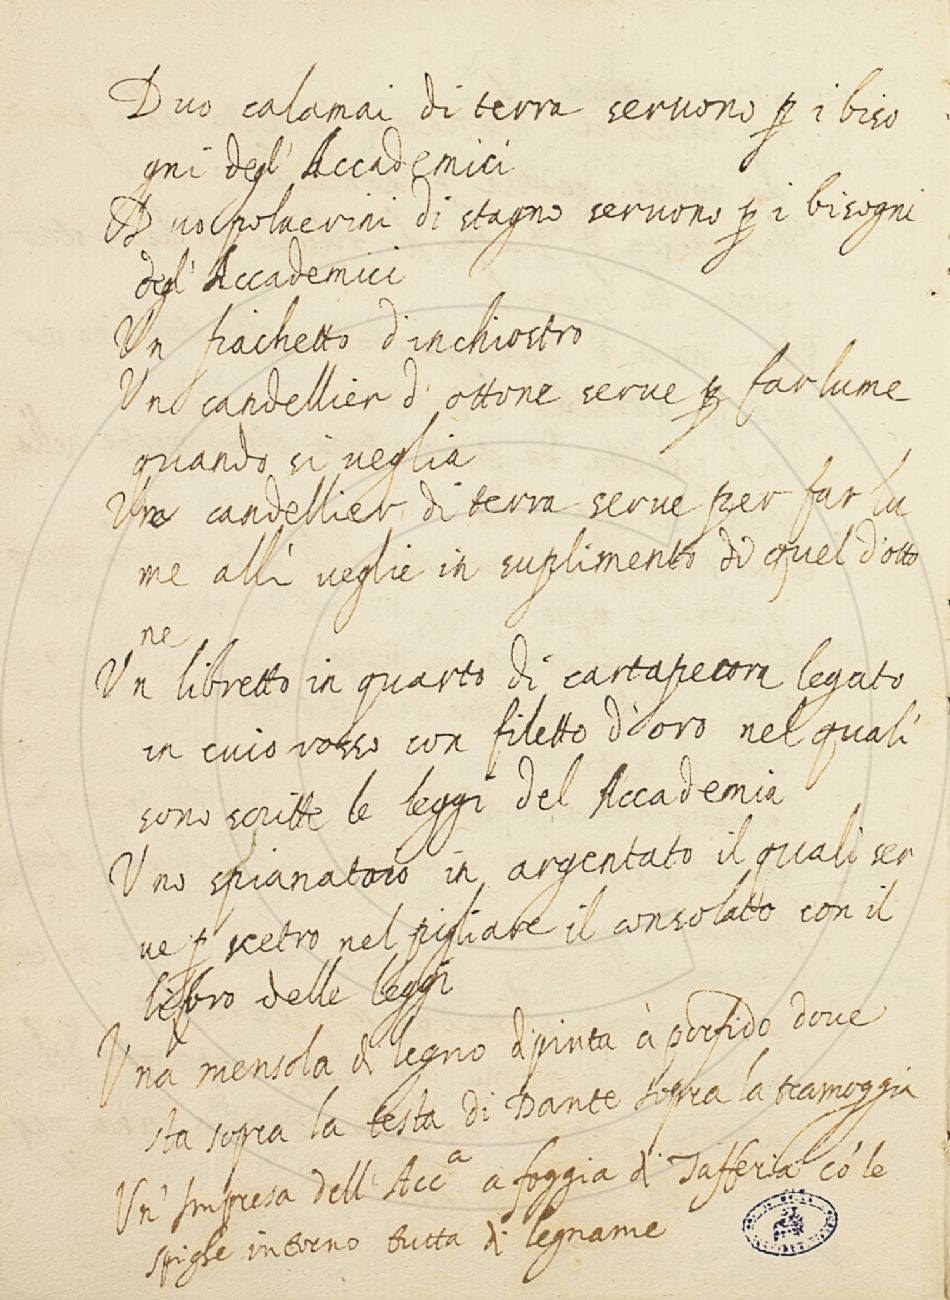 Duo calamai di terra seruono ꝑ i biso
gni degl' Accademici
Duo poluerini di stagno seruono ꝑ i bisogni
degl' Accademici
Un fiachetto d'inchiostro
Uno candellier d' ottone serue ꝑ far lume
quando si ueglia
Un candellier di terra serue per far lu
me alli ueglie in suplimento di quel d'otto
ne
Un libretto in quarto di cartapecora legato
in cuio rosso con filetto d'oro nel quali
sono scritte le leggi del Accademia
Uno spianatoio in argentato il quali ser
ue ꝑ scetro nel pigliare il consolatto con il
libro delle leggi
Una mensola di legno dipinta à porfido doue
sta sopra la testa di Dante sopra la tramoggia
Un' Impresa dell' Acc.a a foggia di Tafferia co' le
spighe intorno tutta di legname